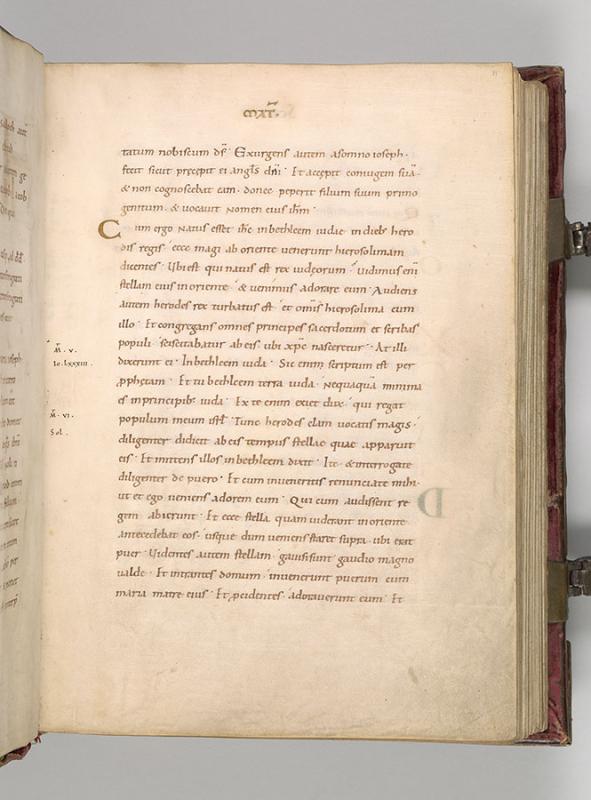 MAT̄
tatum nobiscum dš· Exurgens autem asomno ioseph·
fecit sicut precepit ei angls dni· Et accepit coniugem suā·
& non cognoscebat eam· donec peperit filium suum primo
genitum· & uocauit nomen eius ihm·
Cum ergo natus esset ihc in bethleem iudae in dieb; hero
dis regis· ecce magi ab oriente uenerunt hierosolimam
dicentes· Ubi est qui natus est rex iudeorum· uidimus eni
stellam eius in oriente· & uenimus adorare eum· Audiens
autem herodes rex turbatus est· et omis hierosolima cum
illo· Et congregans omnes principes sacerdotum et scribas
populi· sciscitabatur ab eis ubi xpc nasceretur· At illi
dixerunt ei· In bethleem iuda· Sic enim scriptum est per
pphetam· Et tu bethleem terra iuda· Nequaquā minima
es in principib; iuda· Ex te enim exiet dux· qui regat
populum meum isrl· Tunc herodes clam uocatis magis·
diligenter didicit ab eis tempus stellae quae apparuit
eis· Et mittens illos in bethleem dixit· Ite· & interrogate
diligenter de puero· Et cum inueneritis renunciate mihi·
ut et ego ueniens adorem eum· Qui cum audissent re
gem abierunt· Et ecce stella quam uiderant in oriente
antecedebat eos· usque dum ueniens staret supra ubi erat
puer· Uidentes autem stellam· gauisi sunt gaudio magno
ualde· Et intrantes domum· inuenerunt puerum cum
maria matre eius· Et pcidentes adorauerunt eum· Et
M̄·v·
Io·lxxxiii·
M̄·vi·
Sol·